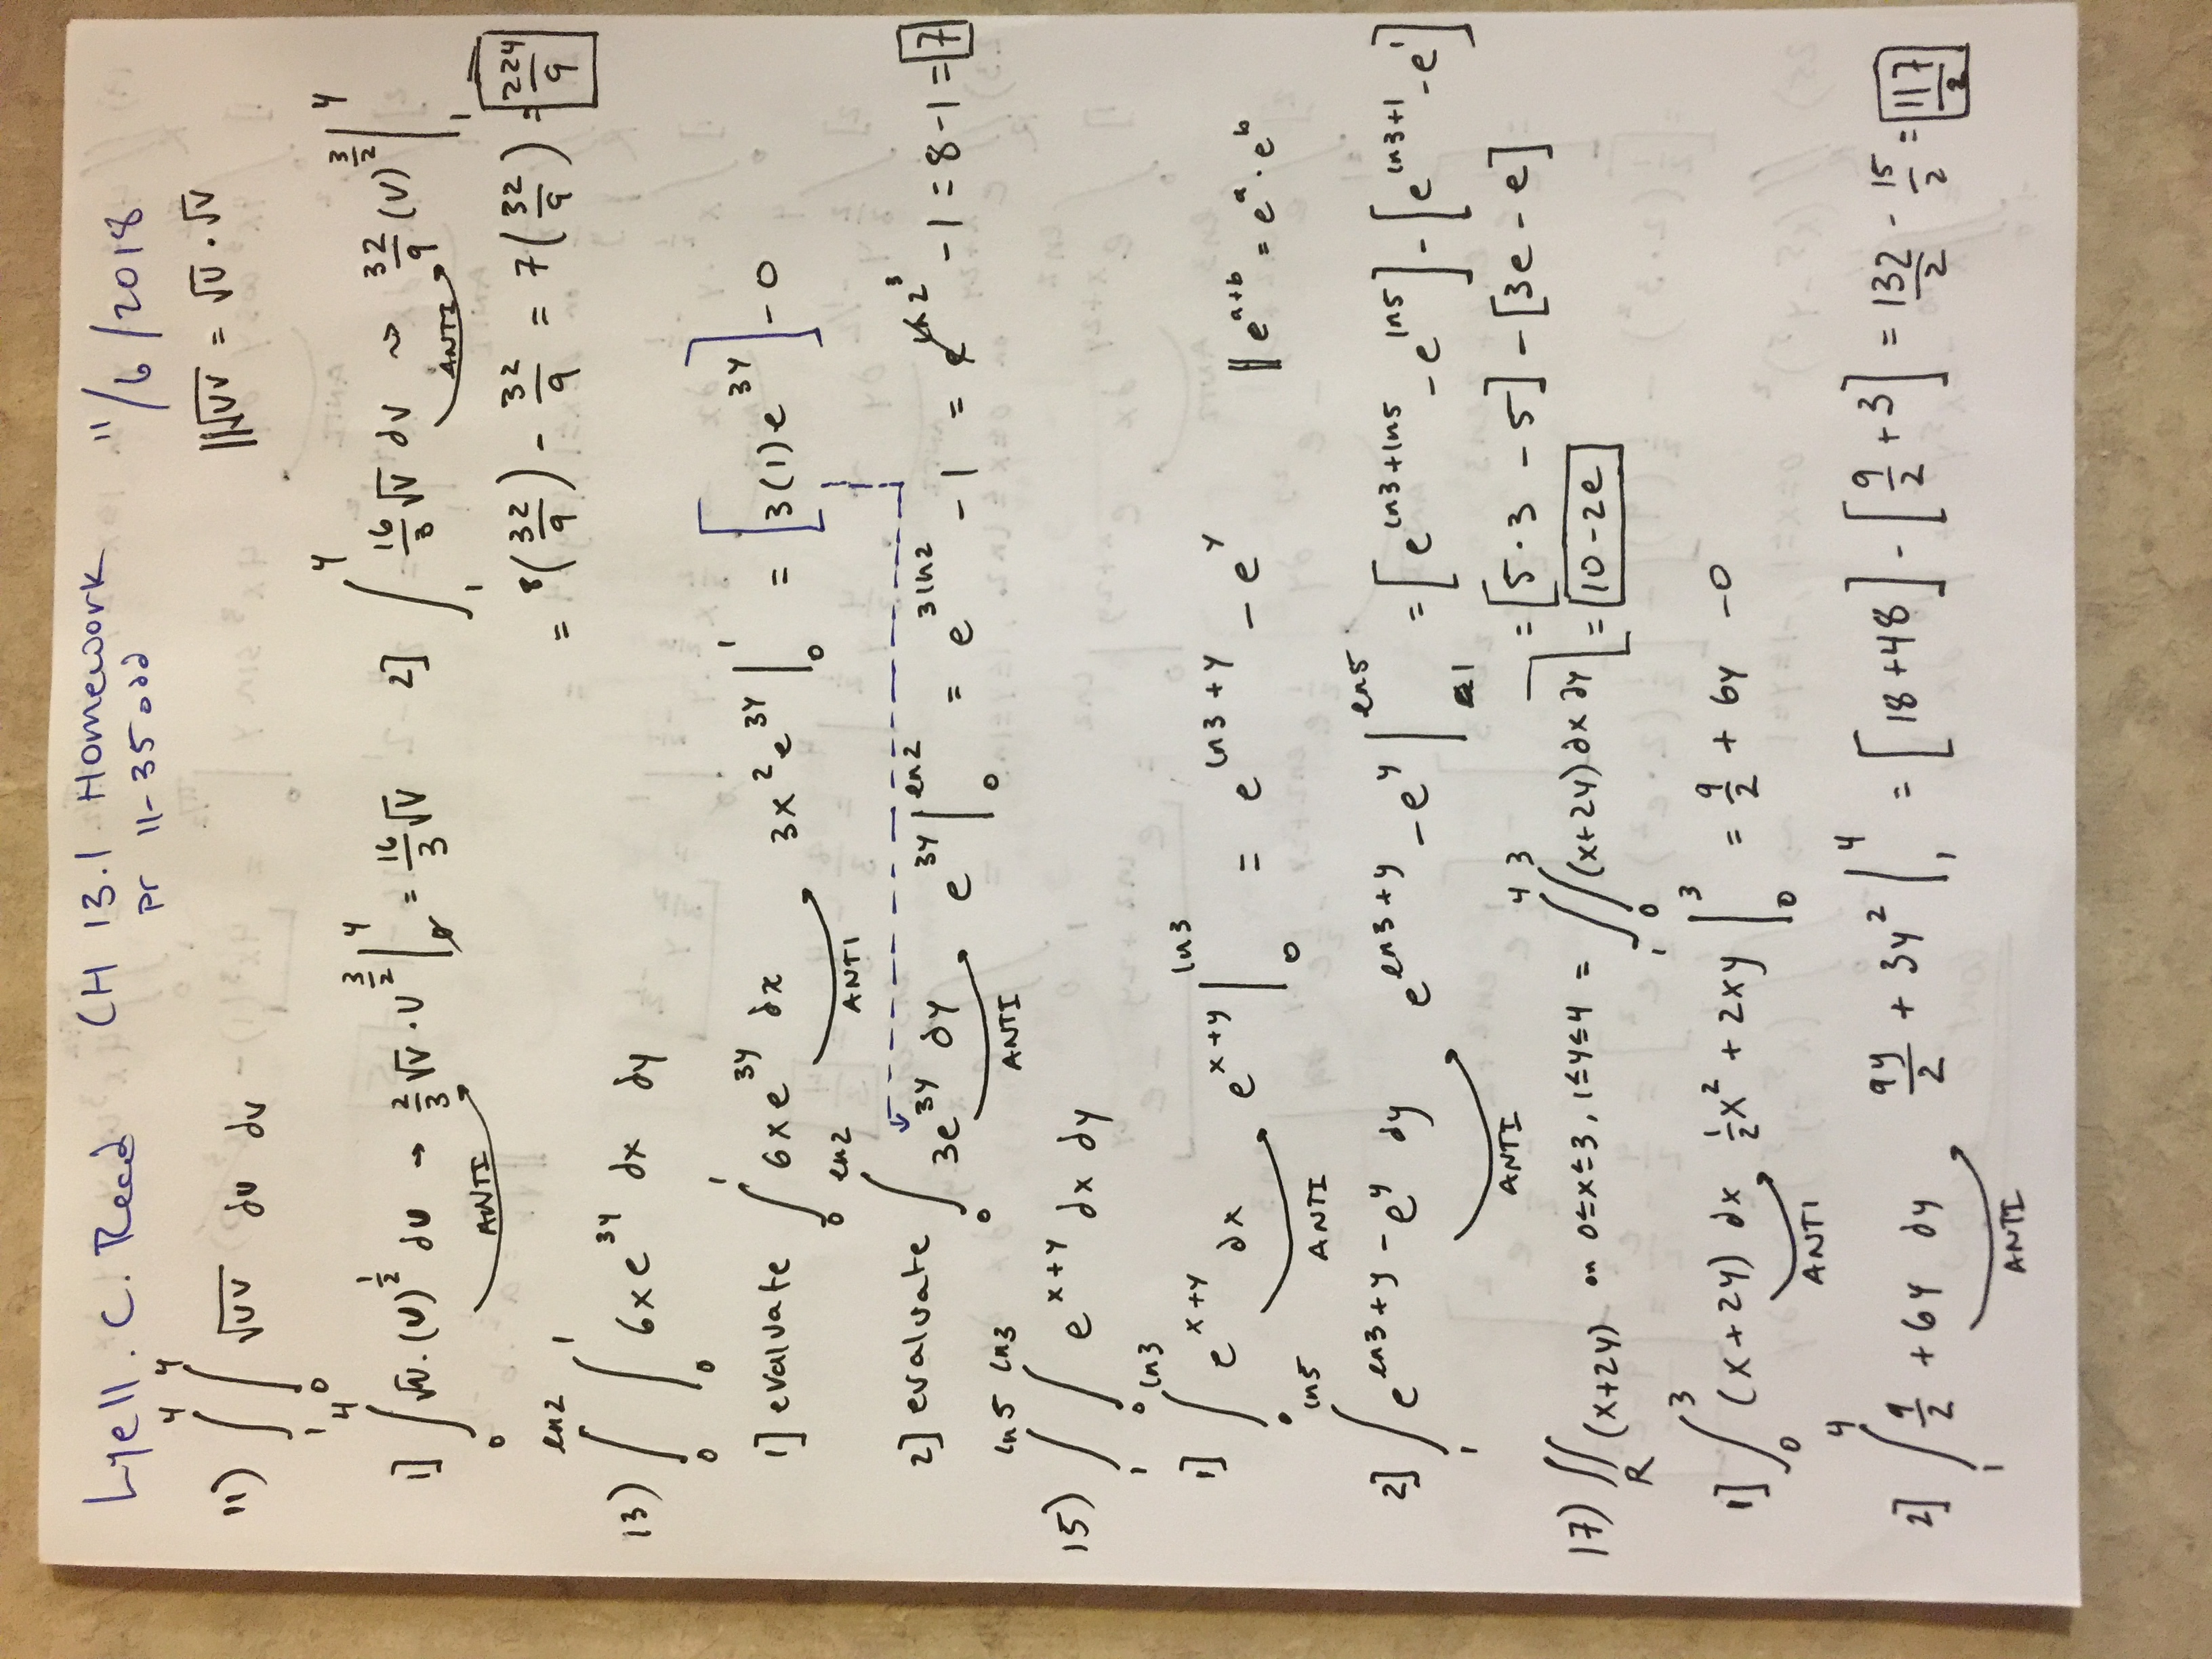 Lyell. C. Read CH 13.1 Homework 11/6/2018
pr 11-35 odd
11) ∫₁⁴ ∫₀⁴ √uv du dv ||√uv = √u · √v
1] ∫₀⁴ √v · (u)^(1/2) du → 2/3 √v · u^(3/2) |₀⁴ = 16/3 √v 2] ∫₁⁴ 16/3 √v dv ~> 32/9 (v)^(3/2) |₁⁴
ANTI ANTI
= 8(32/9) - 32/9 = 7(32/9) = 224/9
13) ∫₀^(ln2) ∫₀¹ 6xe^(3y) dx dy
1] evaluate ∫₀¹ 6xe^(3y) dx 3x²e^(3y) |₀¹ = [3(1)e^(3y)] - 0
ANTI
2] evaluate ∫₀^(ln2) 3e^(3y) dy e^(3y) |₀^(ln2) = e^(3ln2) - 1 = e^(ln2³) - 1 = 8 - 1 = 7
ANTI
15) ∫₁^(ln5) ∫₀^(ln3) e^(x+y) dx dy
1] ∫₀^(ln3) e^(x+y) dx e^(x+y) |₀^(ln3) = e^(ln3+y) - e^y || e^(a+b) = e^a · e^b
ANTI
2] ∫₁^(ln5) e^(ln3+y) - e^y dy e^(ln3+y) - e^y |₁^(ln5) = [e^(ln3+ln5) - e^(ln5)] - [e^(ln3+1) - e^1]
ANTI
= [5·3 - 5] - [3e - e]
= 10-2e
17) ∬_R (x+2y) on 0≤x≤3, 1≤y≤4 = ∫₁⁴ ∫₀³ (x+2y) dx dy
1] ∫₀³ (x+2y) dx ½x² + 2xy |₀³ = 9/2 + 6y - 0
ANTI
2] ∫₁⁴ 9/2 + 6y dy 9y/2 + 3y² |₁⁴ = [18+48] - [9/2 + 3] = 132/2 - 15/2 = 117/2
ANTI